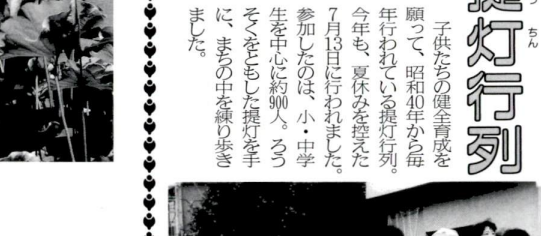 提灯行列
ちん
子供たちの健全育成を
願って、昭和40年から毎
年行われている提灯行列。
今年も、夏休みを控えた
7月13日に行われました。
参加したのは、小・中学
生を中心に約900人。ろう
そくをともした提灯を手
に、まちの中を練り歩き
ました。